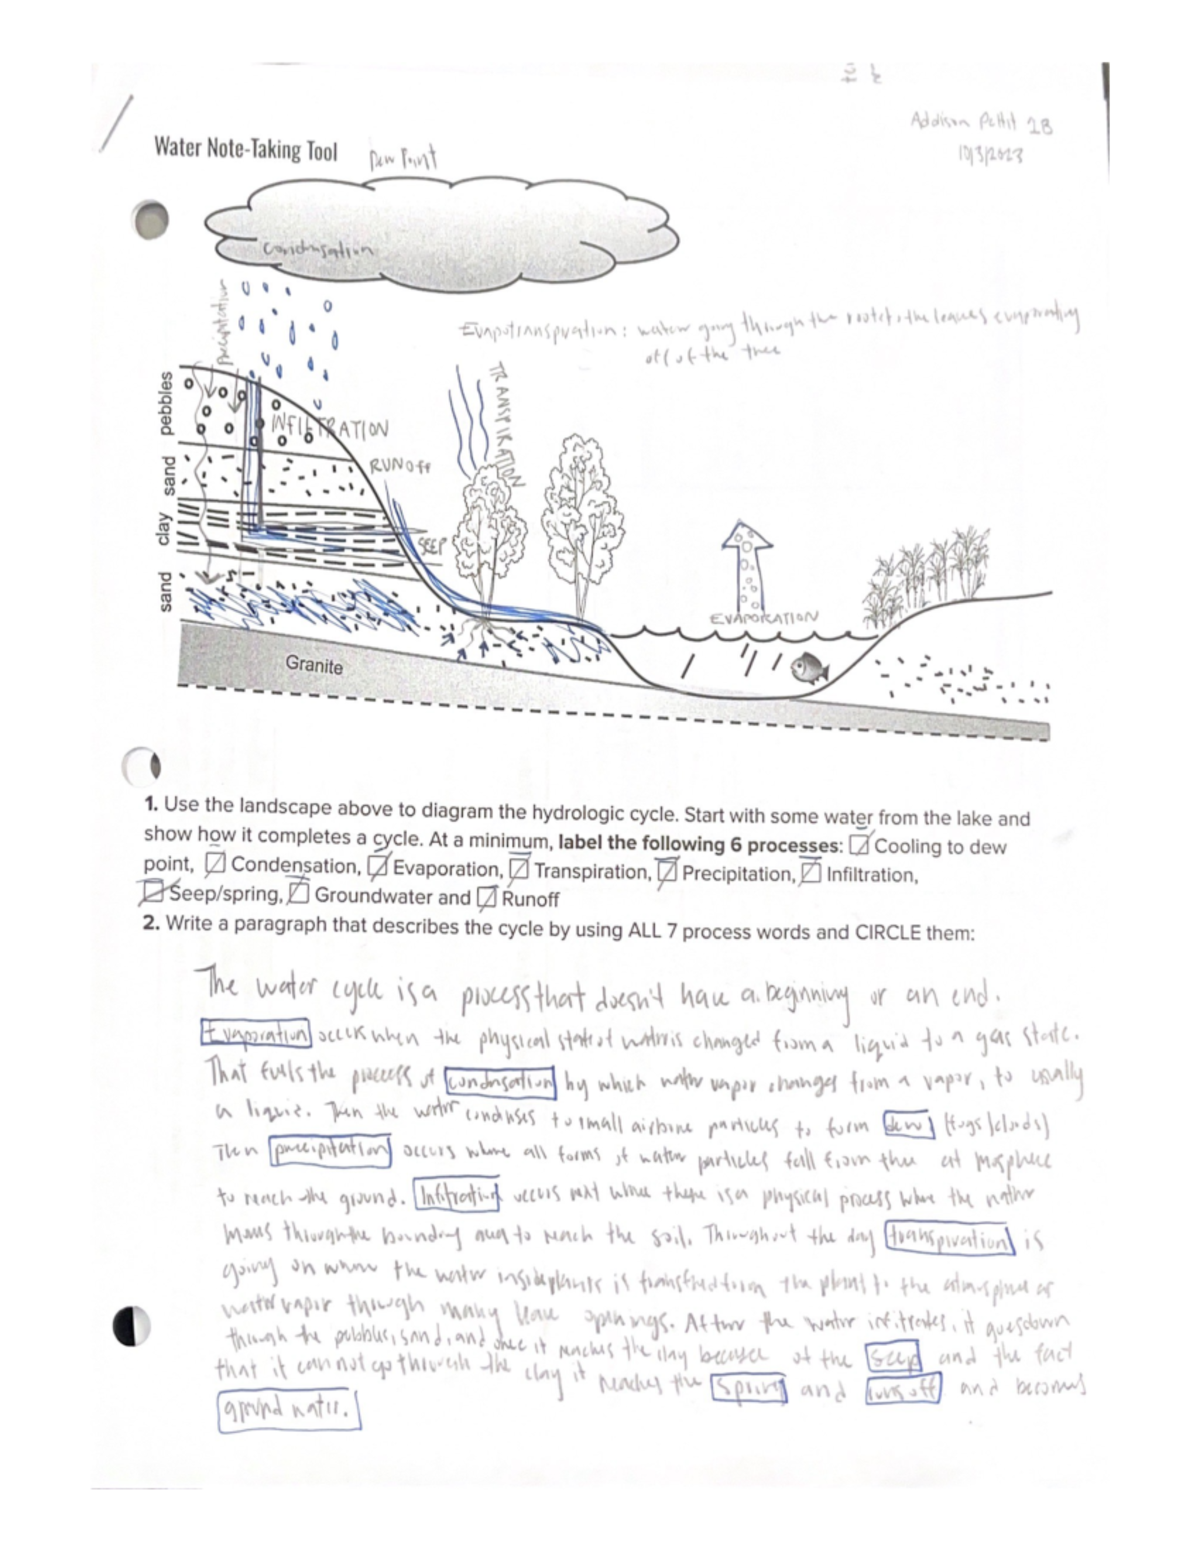 Addison Pettit 2B
10/3/2023
Water Note-Taking Tool
Dew Point
Condensation
Precipitation
Evapotranspiration: water going through the roots to the leaves evaporating
off of the tree
TRANSPIRATION
pebbles
INFILTRATION
sand
RUNOff
clay
SEEP
sand
EVAPORATION
Granite
1. Use the landscape above to diagram the hydrologic cycle. Start with some water from the lake and
show how it completes a cycle. At a minimum, label the following 6 processes: Cooling to dew
point, Condensation, Evaporation, Transpiration, Precipitation, Infiltration,
Seep/spring, Groundwater and Runoff
2. Write a paragraph that describes the cycle by using ALL 7 process words and CIRCLE them:
The water cycle is a process that doesn't have a beginning or an end.
Evaporation occurs when the physical state of water is changed from a liquid to a gas state.
That fuels the process of condensation by which water vapor changes from a vapor, to usually
a liquid. Then the water condenses to small airborne particles to form dew (fogs/clouds)
Then precipitation occurs where all forms of water particles fall from the atmosphere
to reach the ground. Infiltration occurs next where there is a physical process where the water
moves through the boundry to reach the soil. Throughout the day transpiration is
going on where the water inside plants is transfred from the plant to the atmosphere as
water vapor through many leave openings. After the water infiltrates, it goes down
through the pebbles, sand, and once it reaches the clay because of the seep and the fact
that it can not go through the clay it reaches the spring and runoff and becomes
ground water.